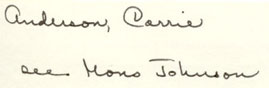 Anderson, Carrie
see Mons Johnson